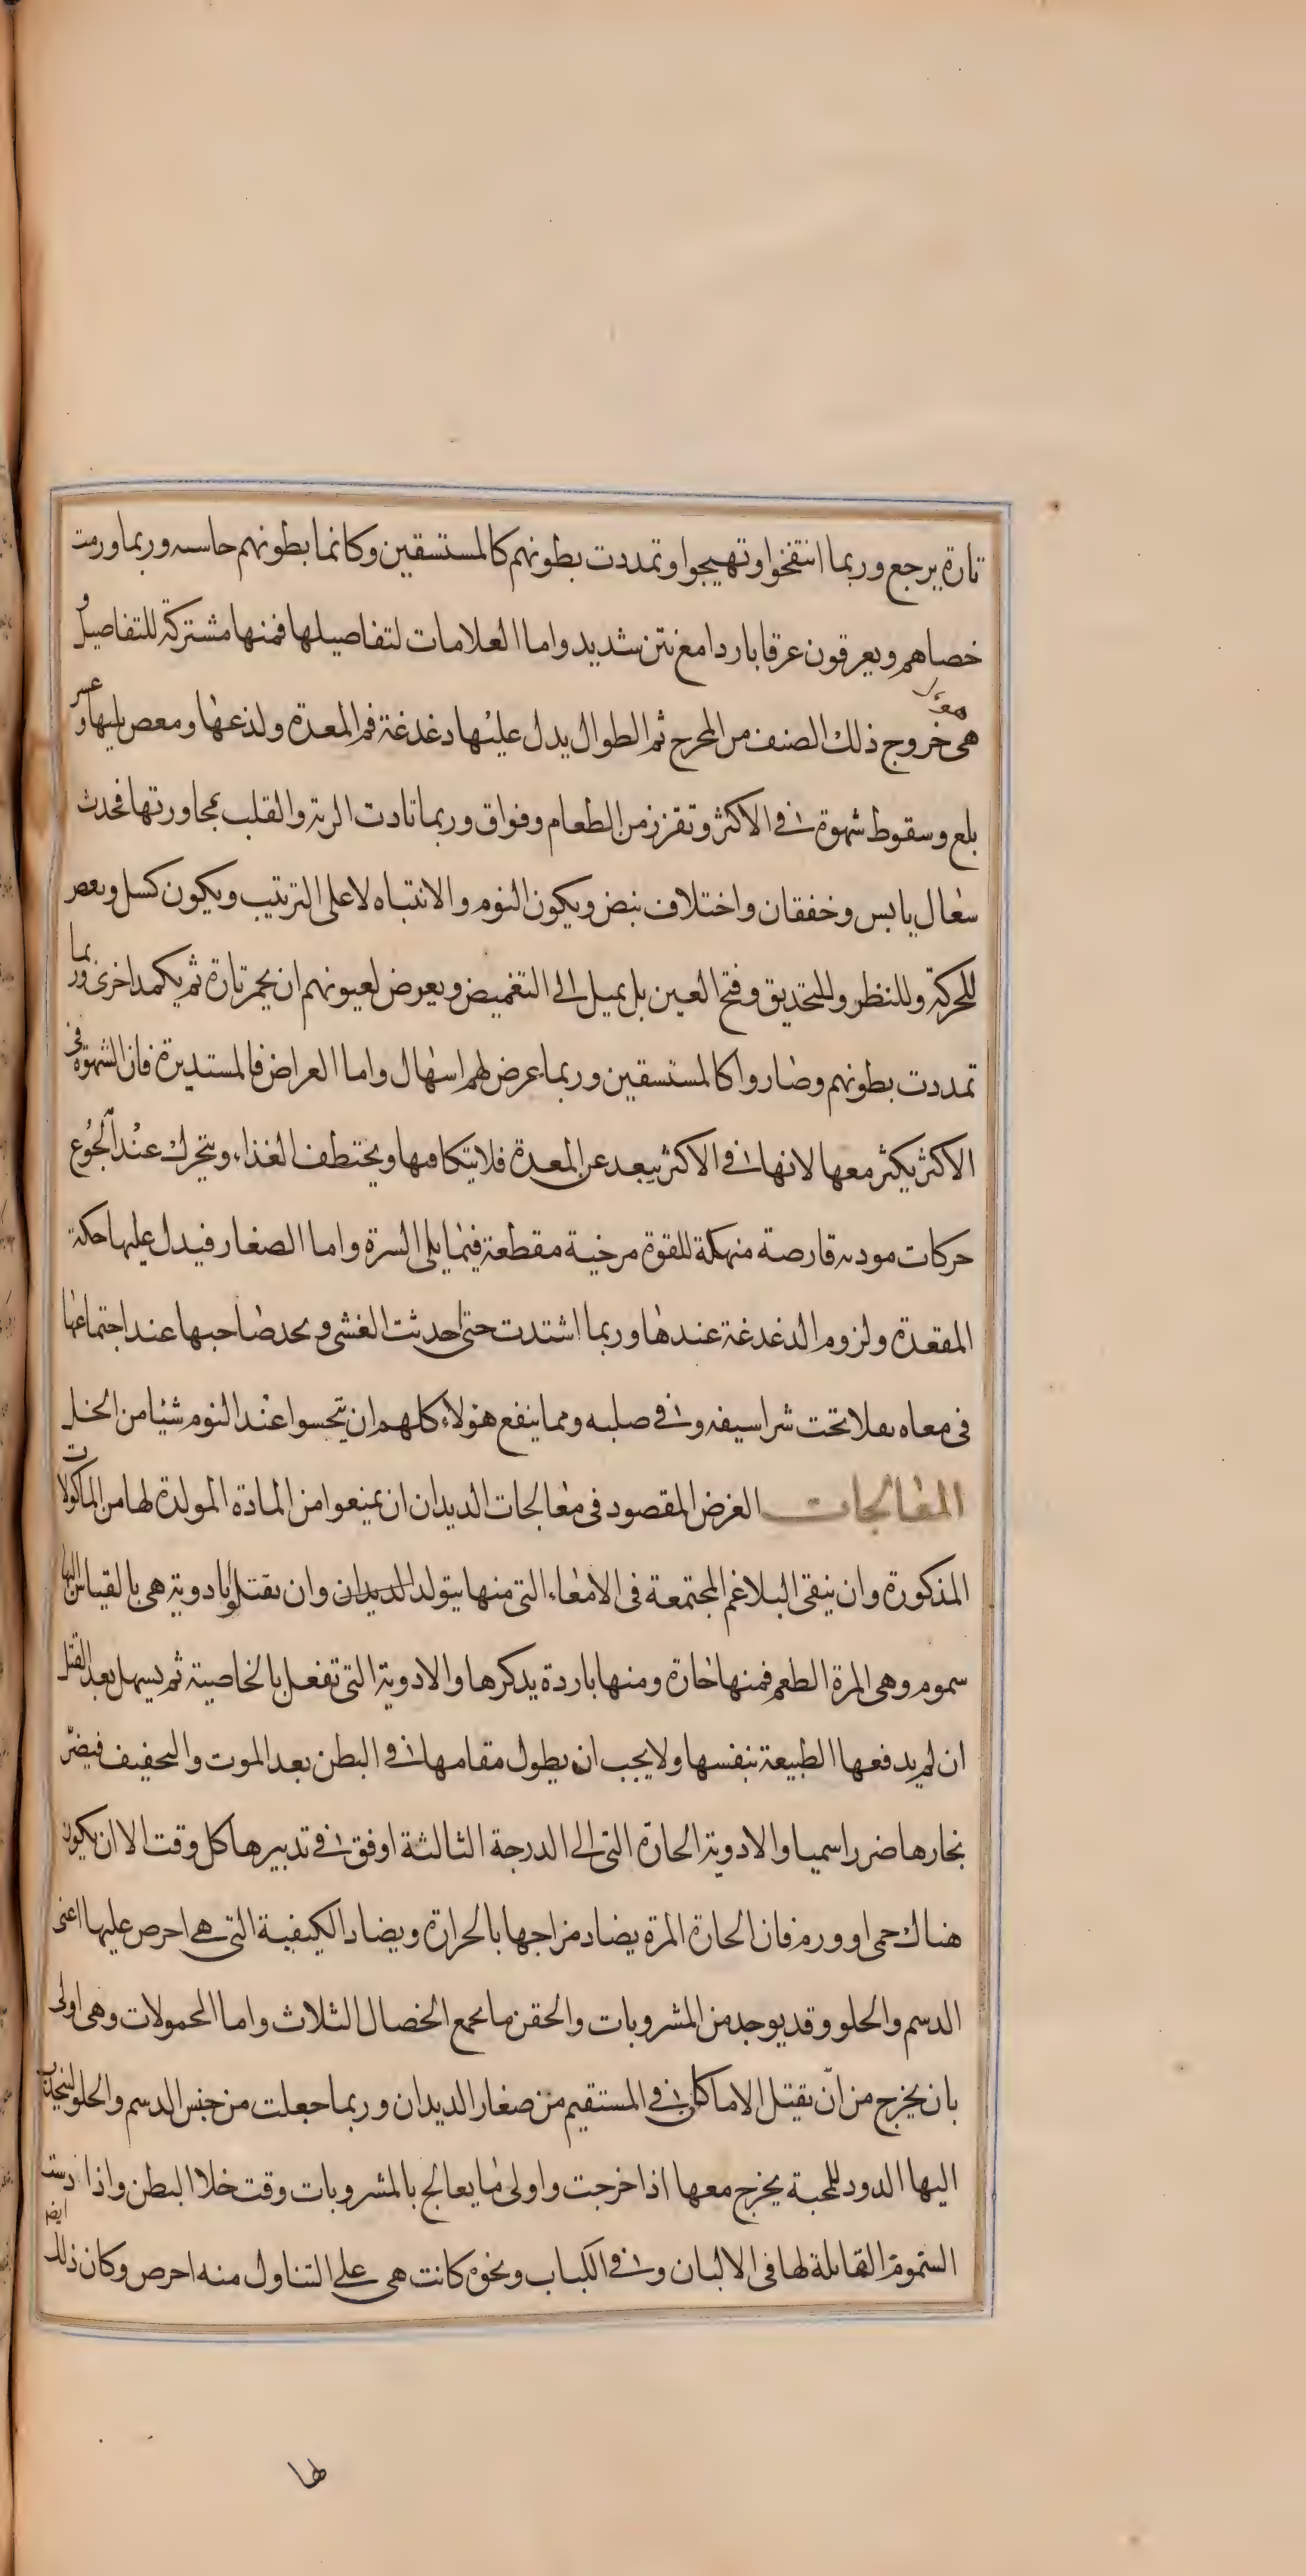 تارة يرجع وربما انتفخوا وتهيجوا وتمددت بطونهم كالمستسقين وكانما بطونهم حاسه وربما ورمت
خصاهم ويعرقون عرقا باردا مع نتن شديد واما العلامات لتفاصيلها فمنها مشتركة للتفاصيل و
هى خروج ذلك الصنف من المخرج ثم الطوال يدل عليها دغدغة فم المعدة ولذعها ومعص يليها وعسر
بلع وسقوط شهوة فى الاكثر وتقزز من الطعام وفواق وربما تادت الرية والقلب بمجاورتها فحدث
سعال يابس وخفقان واختلاف نبض ويكون النوم والانتباه لا على الترتيب ويكون كسل وبعض
للحركة وللنظر وللتحديق وفتح العين بل يميل الى التغميض ويعرض لعيونهم ان يحمر تارة ثم يكمد اخرى وربما
تمددت بطونهم وصاروا كالمستسقين وربما عرض لهم اسهال واما العراض فالمستديرة فان الشهوة فى
الاكثر يكثر معها لانها فى الاكثر يبعد عن المعدة فلا يتكا فيها ويختطف الغذاء ويتحرك عند الجوع
حركات موديه قارصة منهكة للقوة مرخية مقطعة فيما يلى السرة واما الصغار فيدل عليها حكة
المقعدة ولزوم الدغدغة عندها وربما اشتدت حتى احدثت الغشى ويجد صاحبها عند اجتماعها
فى معاه ثقلا تحت شراسيفه وفى صلبه ومما ينفع هؤلاء كلهم ان يتحسوا عند النوم شيئا من الخل
المعالجات الغرض المقصود فى معالجات الديدان ان يمنعوا من المادة المولدة لها من الماكولات
المذكورة وان ينقى البلاغم المجتمعة فى الامعاء التى منها يتولد الديدان وان يقتلوا بادوية هى بالقياس اليها
سموم وهى المرة الطعم فمنها حارة ومنها باردة يدكرها والادوية التى تفعل بالخاصية ثم يسهل بعد القتل
ان لم يدفعها الطبيعة بنفسها ولا يجب ان يطول مقامها فى البطن بعد الموت والتحفيف فيضر
بخارها ضررا سميا والادوية الحارة التى الى الدرجة الثالثة اوفق فى تدبيرها كل وقت الا ان يكون
هناك حمى او ورم فان الحارة المرة يضاد مزاجها بالحرارة ويضاد الكيفية التى هى احرص عليها اعنى
الدسم والحلو وقد يوجد من المشروبات والحقن ما يجمع الخصال الثلاث واما المحمولات وهى اولى
بان يخرج من ان يقتل الا ما كان فى المستقيم من صغار الديدان وربما جعلت من جنس الدسم والحلو لينجذب
اليها الدود للمحبة يخرج معها اذا خرجت واولى ما يعالج بالمشروبات وقت خلا البطن واذا دست
السموم القاتلة لها فى الالبان وفى الكباب ونحوه كانت هى على التناول منه احرص وكان ذلك ايضا
لها